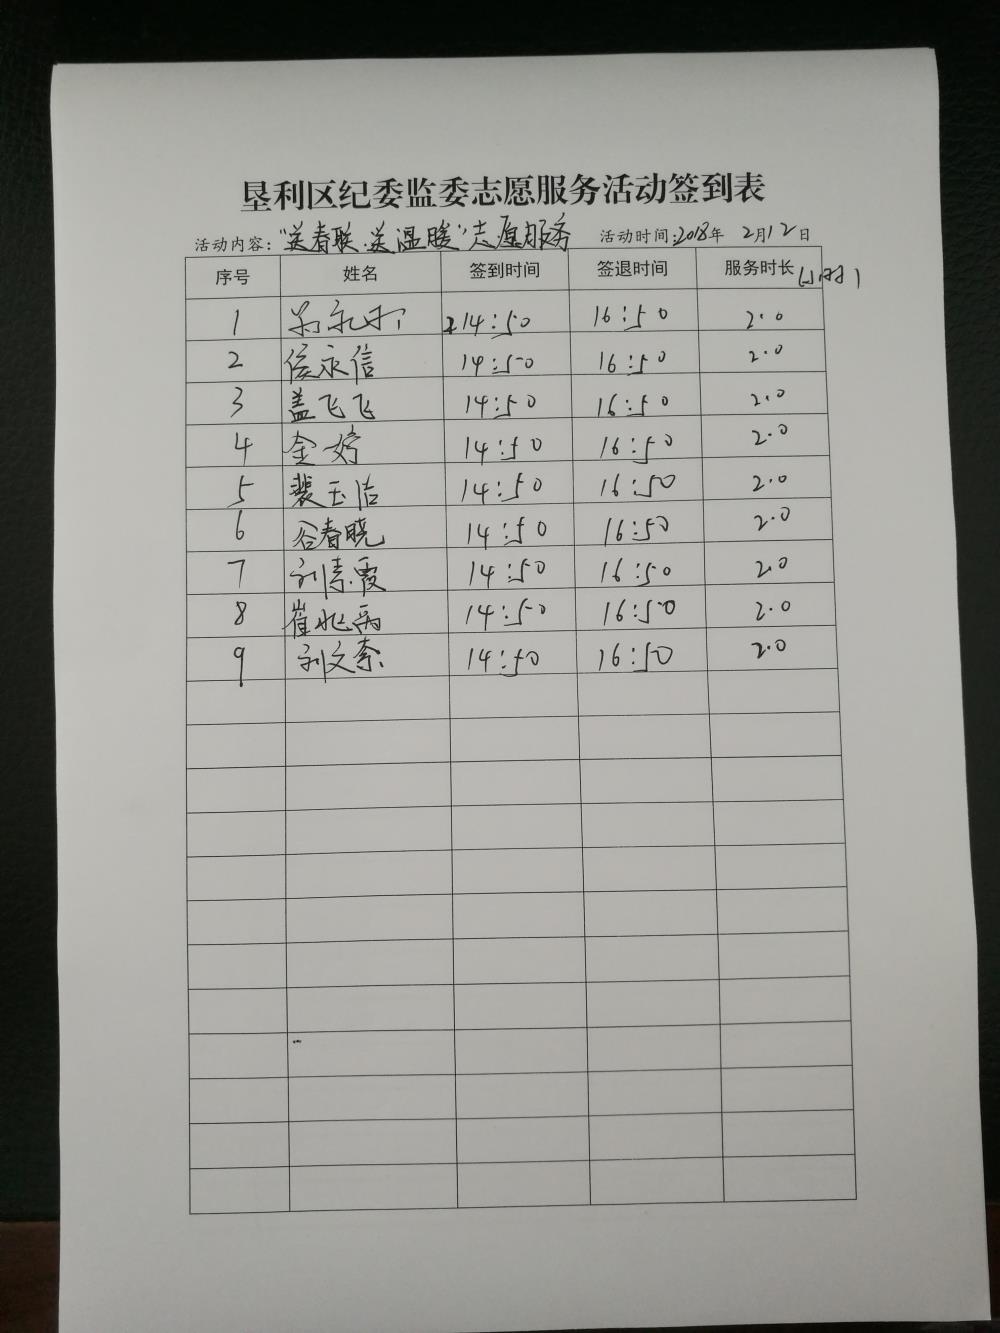 垦利区纪委监委志愿服务活动签到表
活动内容："送春联.送温暖"志愿服务 活动时间:2018年 2月12日
序号 姓名 签到时间 签退时间 服务时长(小时)
1 14:50 16:50 2.0
2 侯永信 14:50 16:50 2.0
3 盖飞飞 14:50 16:50 2.0
4 金婷 14:50 16:50 2.0
5 裴玉洁 14:50 16:50 2.0
6 谷春晓 14:50 16:50 2.0
7 刘素霞 14:50 16:50 2.0
8 崔兆禹 14:50 16:50 2.0
9 刘文泰 14:50 16:50 2.0